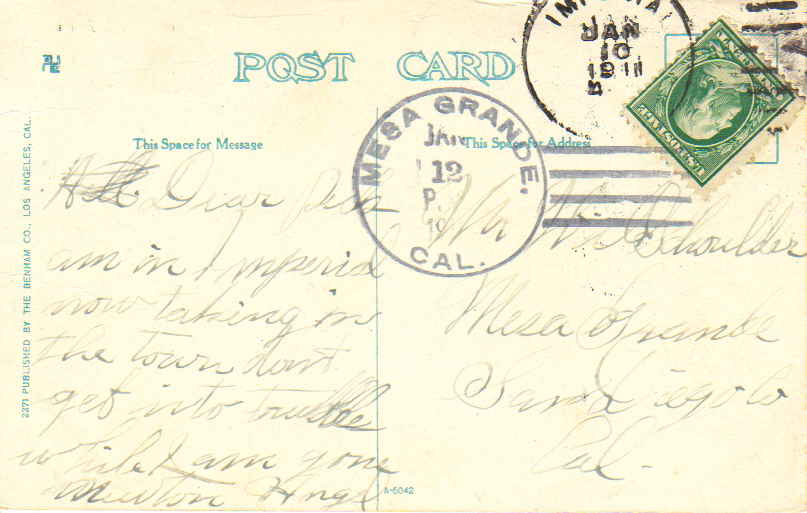 POST CARD
This Space for Message
This Space for Address
IMPERIAL
JAN
10
1911
MESA GRANDE,
JAN
12
P.
19
CAL.
Dear
am in Imperial
now taking in
the town dont
get into trouble
while I am gone
Newton Angel
Mr W. Shoulder
Mesa Grande
San Diego Co
Cal.
2271 PUBLISHED BY THE BENHAM CO., LOS ANGELES, CAL.
A-5042